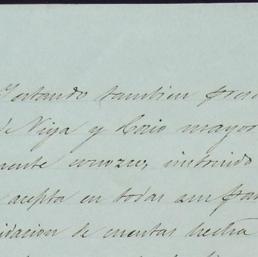 Estando tambien pres
de Niya y Coio mayor
mente conozco, instruido
acepta en todas sus par
idacion de cuentas hecha